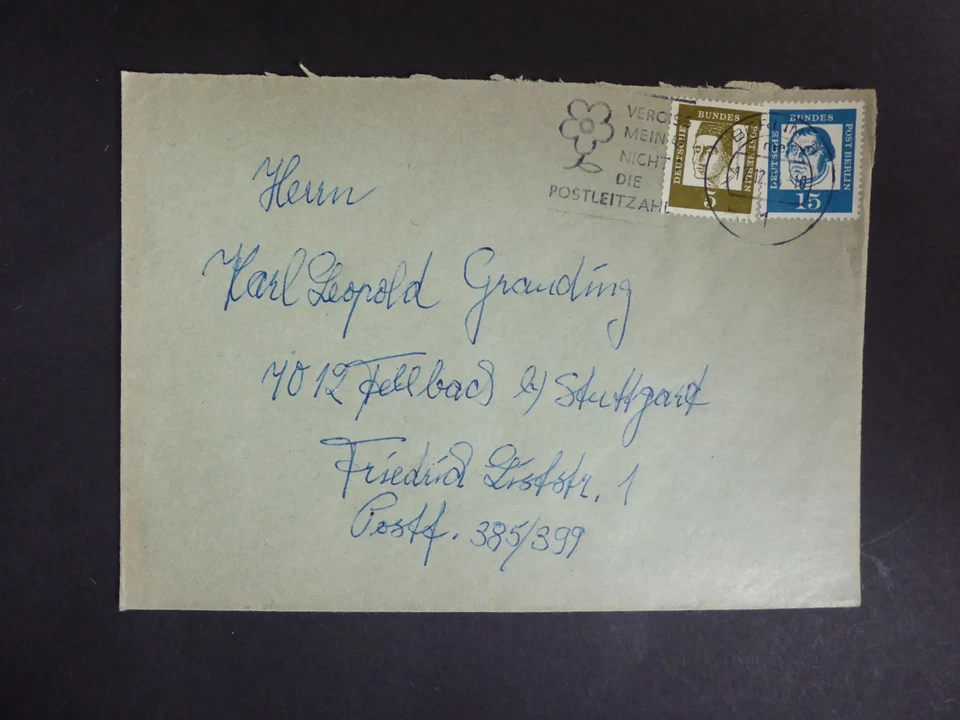 VERGISS
MEIN
NICHT
DIE
POSTLEITZAHL
DEUTSCHE BUNDES POST BERLIN
5
DEUTSCHE BUNDES POST BERLIN
15
Herrn
Karl Leopold Grauding
7012 Fellbach b/ Stuttgart
Friedrich Liststr. 1
Postf. 385/399